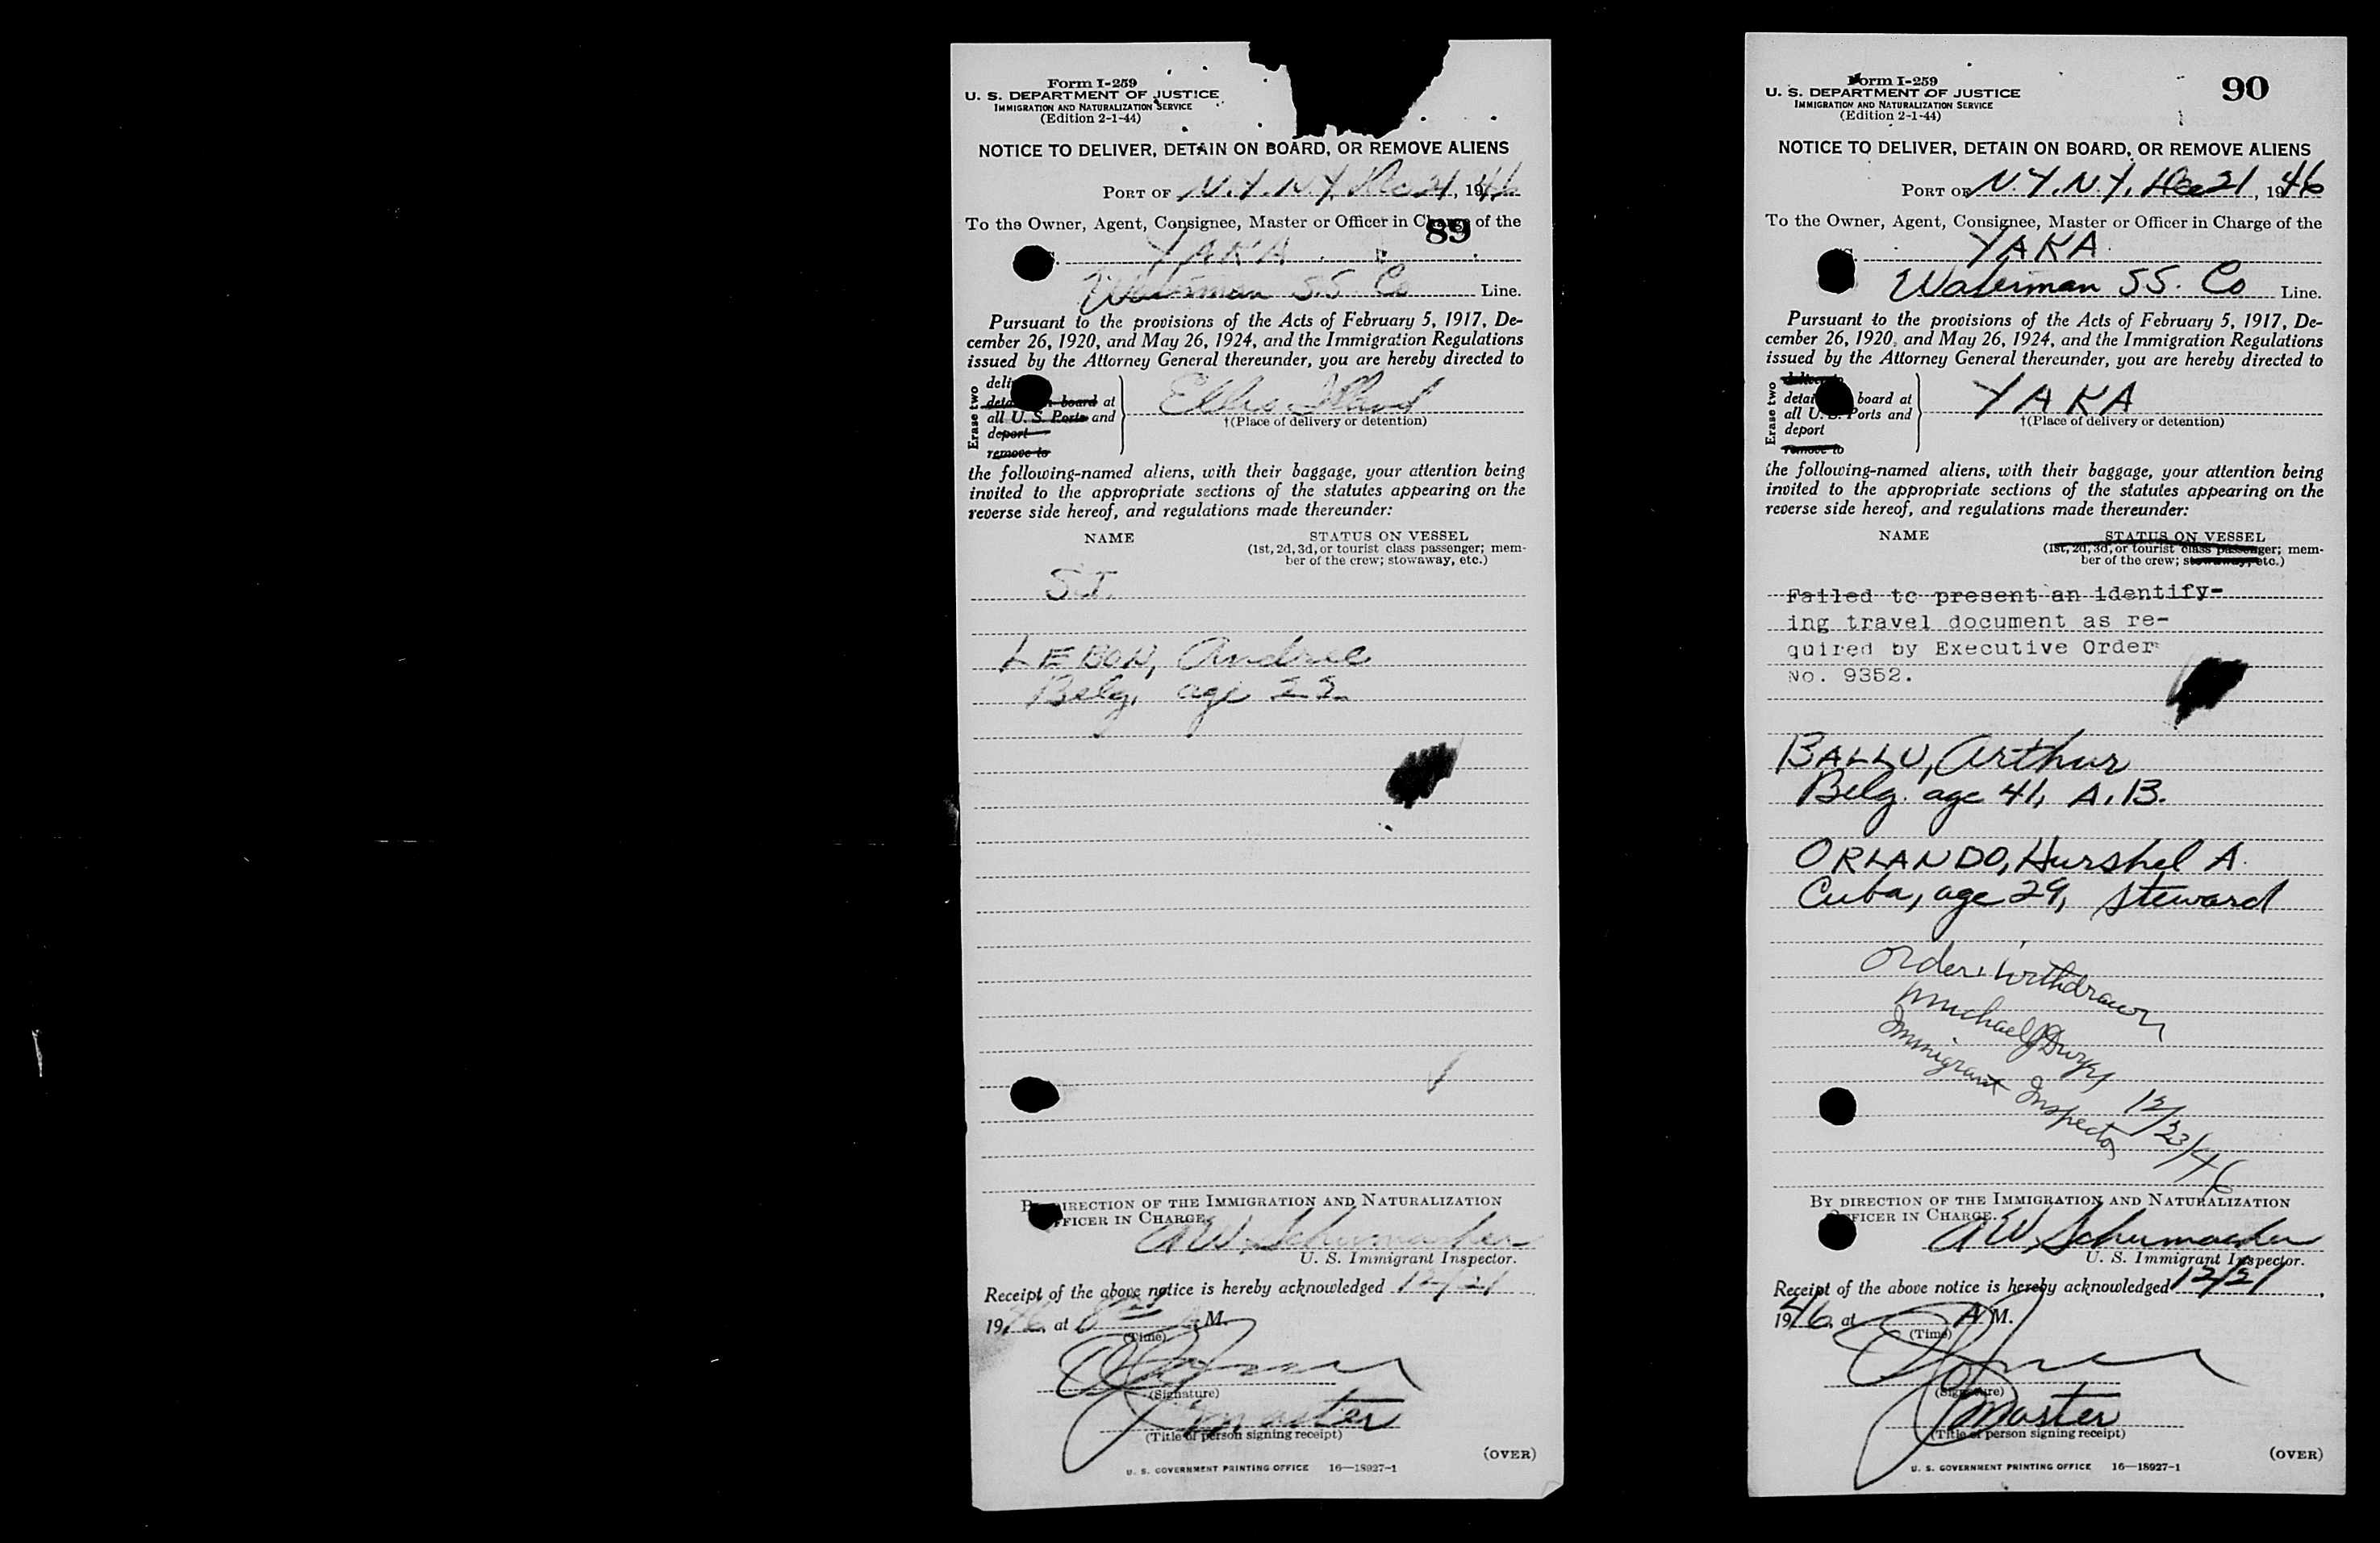 Form I-259
U. S. DEPARTMENT OF JUSTICE
IMMIGRATION AND NATURALIZATION SERVICE
(Edition 2-1-44)
NOTICE TO DELIVER, DETAIN ON BOARD, OR REMOVE ALIENS
PORT OF N.Y.N.Y. Dec 21, 1946
To the Owner, Agent, Consignee, Master or Officer in Charge of the
89
YAKA
Waterman SS. Co Line.
Pursuant to the provisions of the Acts of February 5, 1917, De-
cember 26, 1920, and May 26, 1924, and the Immigration Regulations
issued by the Attorney General thereunder, you are hereby directed to
Erase two
board at
all U. S. Ports and
deport
remove to
Ellis Island
†(Place of delivery or detention)
the following-named aliens, with their baggage, your attention being
invited to the appropriate sections of the statutes appearing on the
reverse side hereof, and regulations made thereunder:
NAME STATUS ON VESSEL
(1st, 2d, 3d, or tourist class passenger; mem-
ber of the crew; stowaway, etc.)
LEBON, Andree
Belg. age 22
BY DIRECTION OF THE IMMIGRATION AND NATURALIZATION
OFFICER IN CHARGE.
A W. Schumacher
U. S. Immigrant Inspector.
Receipt of the above notice is hereby acknowledged 12/21
1946, at M.
(Time)
(Signature)
Master
(Title of person signing receipt)
(OVER)
U. S. GOVERNMENT PRINTING OFFICE 16—18927-1
Form I-259
90
U. S. DEPARTMENT OF JUSTICE
IMMIGRATION AND NATURALIZATION SERVICE
(Edition 2-1-44)
NOTICE TO DELIVER, DETAIN ON BOARD, OR REMOVE ALIENS
PORT OF N.Y.N.Y. Dec 21, 1946
To the Owner, Agent, Consignee, Master or Officer in Charge of the
YAKA
Waterman SS. Co Line.
Pursuant to the provisions of the Acts of February 5, 1917, De-
cember 26, 1920, and May 26, 1924, and the Immigration Regulations
issued by the Attorney General thereunder, you are hereby directed to
Erase two
deliver to
board at
all U. S. Ports and
deport
remove to
YAKA
†(Place of delivery or detention)
the following-named aliens, with their baggage, your attention being
invited to the appropriate sections of the statutes appearing on the
reverse side hereof, and regulations made thereunder:
NAME STATUS ON VESSEL
(1st, 2d, 3d, or tourist class passenger; mem-
ber of the crew; stowaway, etc.)
Failed to present an identify-
ing travel document as re-
quired by Executive Order
No. 9352.
BALLU, Arthur
Belg. age 41, A.B.
ORLANDO, Hurshel A.
Cuba, age 29, Steward
Order Withdrawn
Michael J Dwyer
Immigrant Inspector
12/23/46
BY DIRECTION OF THE IMMIGRATION AND NATURALIZATION
OFFICER IN CHARGE.
A W. Schumacher
U. S. Immigrant Inspector.
Receipt of the above notice is hereby acknowledged 12/21,
1946, at A. M.
(Time)
(Signature)
Master
(Title of person signing receipt)
(OVER)
U. S. GOVERNMENT PRINTING OFFICE 16—18927-1